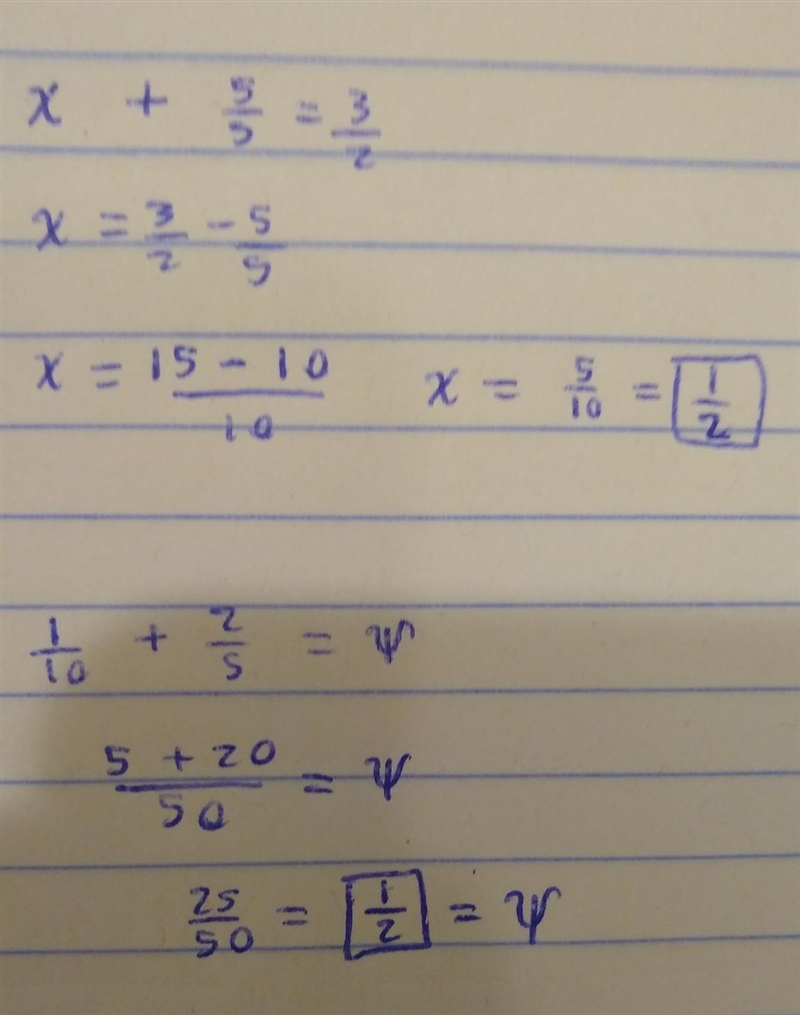 x + 5/5 = 3/2
x = 3/2 - 5/5
x = (15 - 10)/10 x = 5/10 = 1/2
1/10 + 2/5 = ψ
(5 + 20)/50 = ψ
25/50 = 1/2 = ψ